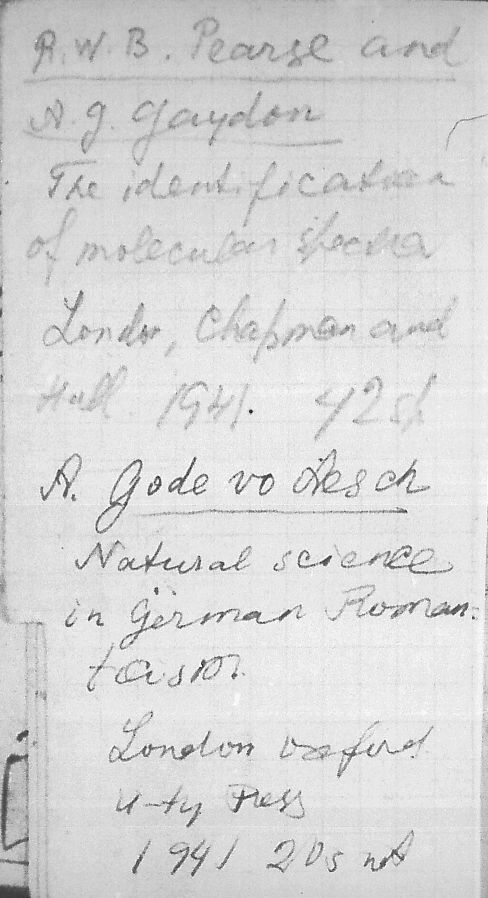 R.W.B. Pearse and
A.G. Gaydon
The identification
of molecular spectra
London, Chapman and
Hall. 1941. 42 sh
A. Gode vo Aesch
Natural science
in German Roman-
ticism.
London Oxford
U-ty Press
1941 20s net